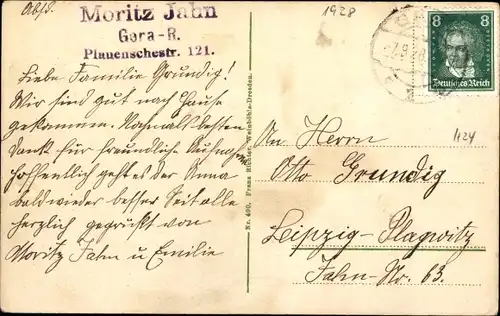 Abs.
Moritz Jahn
Gera-R.
Plauenschestr. 121.
Liebe Familie Grundig!
Wir sind gut nach Hause
gekommen. Nochmals besten
Dank für freundliche Aufnahme
hoffentlich geht es der Anna
bald wieder besser Seit alle
herzlich gegrüßt von
Moritz Jahn u Emilie
Nr. 400, Franz Richter, Weinböhla-Dresden.
1928
8 8
Deutsches Reich
1124
An Herrn
Otto Grundig
Leipzig-Plagwitz
Jahn-Str. 63.